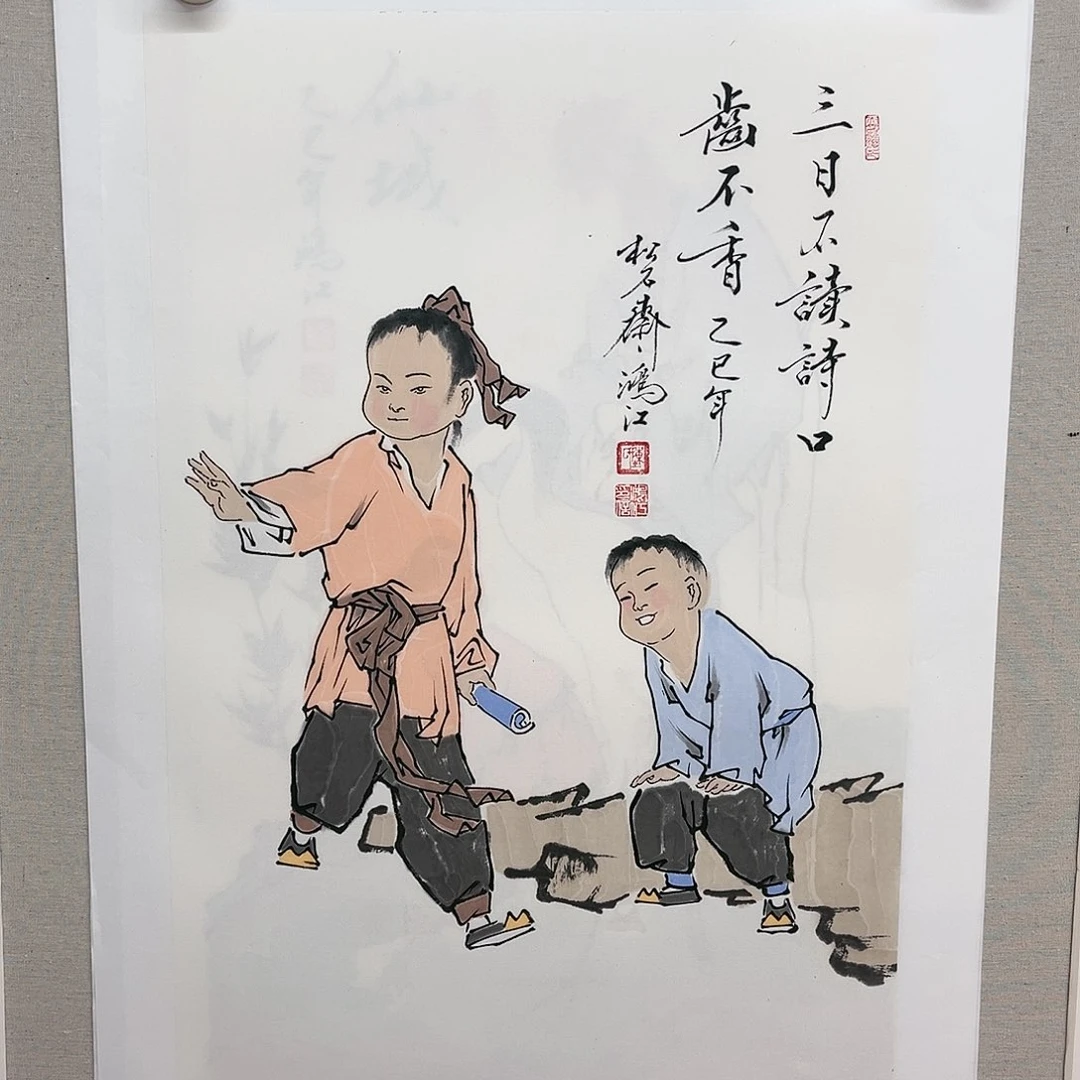 三日不讀詩口
齒不香 乙巳年
松石齋 鴻江